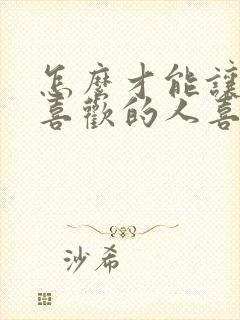 怎麼才能讓
喜歡的人喜
沙希